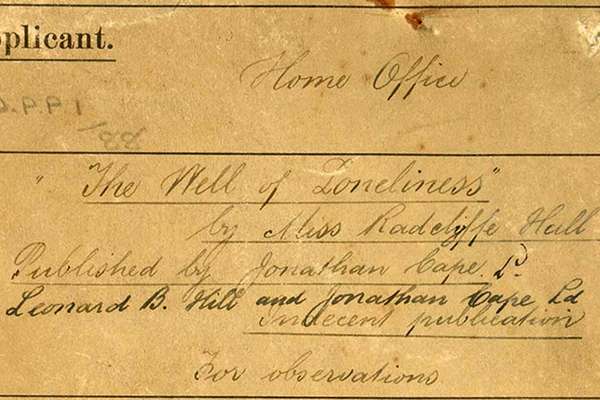 pplicant.
Home Office
D.P.P.1
1/88
"The Well of Loneliness"
by Miss Radclyffe Hall
Published by Jonathan Cape. Ld.
Leonard B. Hill and Jonathan Cape Ld
Indecent publication
For observations